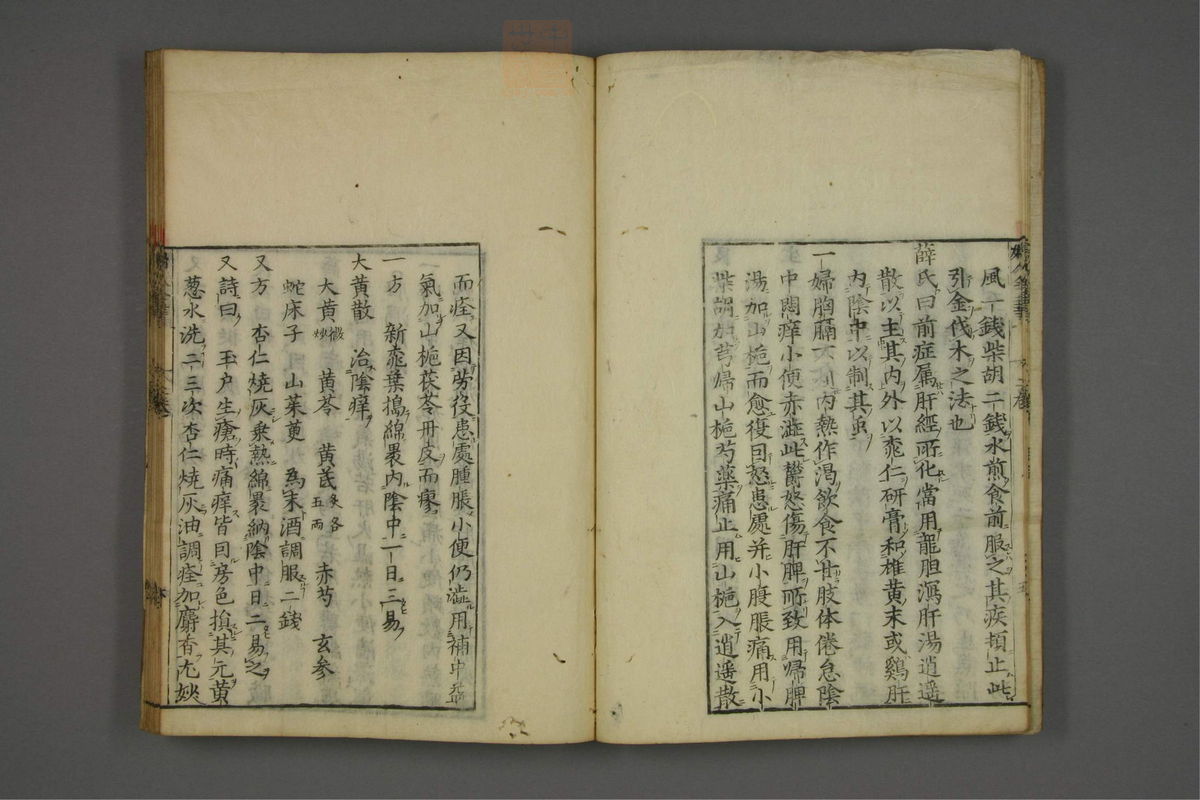 風一錢柴胡二錢水煎食前服之其疾頓止此
引金伐木之法也
薛氏曰前症属肝經所化當用龍胆瀉肝湯逍遥
散以主其内外以桃仁研膏和雄黄末或鷄肝
内陰中以制其虫
一婦胸膈不利内熱作渴飲食不甘肢体倦怠陰
中悶痒小便赤澁此欝怒傷肝脾所致用帰脾
湯加山梔而愈復因怒患處并小腹脹痛用小
柴胡加芎帰山梔芍藥痛止用山梔入逍遥散
而痊又因劳役患處腫脹小便仍澁用補中益
氣加山梔茯苓丹皮而瘳
一方 新桃葉搗綿裹内陰中一日三易
大黄散 治陰痒
大黄微炒 黄芩 黄芪炙各五両 赤芍 玄参
蛇床子 山茱萸 為末酒調服二錢
又方 杏仁焼灰乗熱綿裹納陰中日二易之
又詩曰 玉户生瘡時痛痒皆因房色損其元黄
葱水洗二三次杏仁焼灰油調痊加麝香尤妙